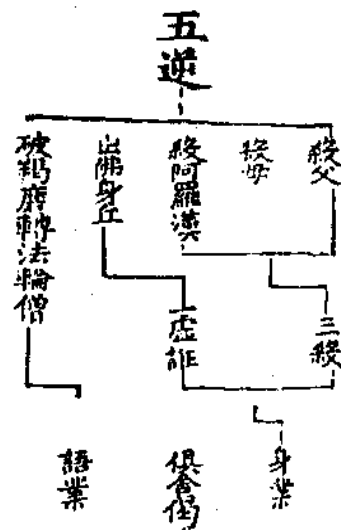 五逆
殺父
殺母
殺阿羅漢
出佛身血
破羯磨轉法輪僧
三殺
一虛誑
身業
俱舍偈
語業